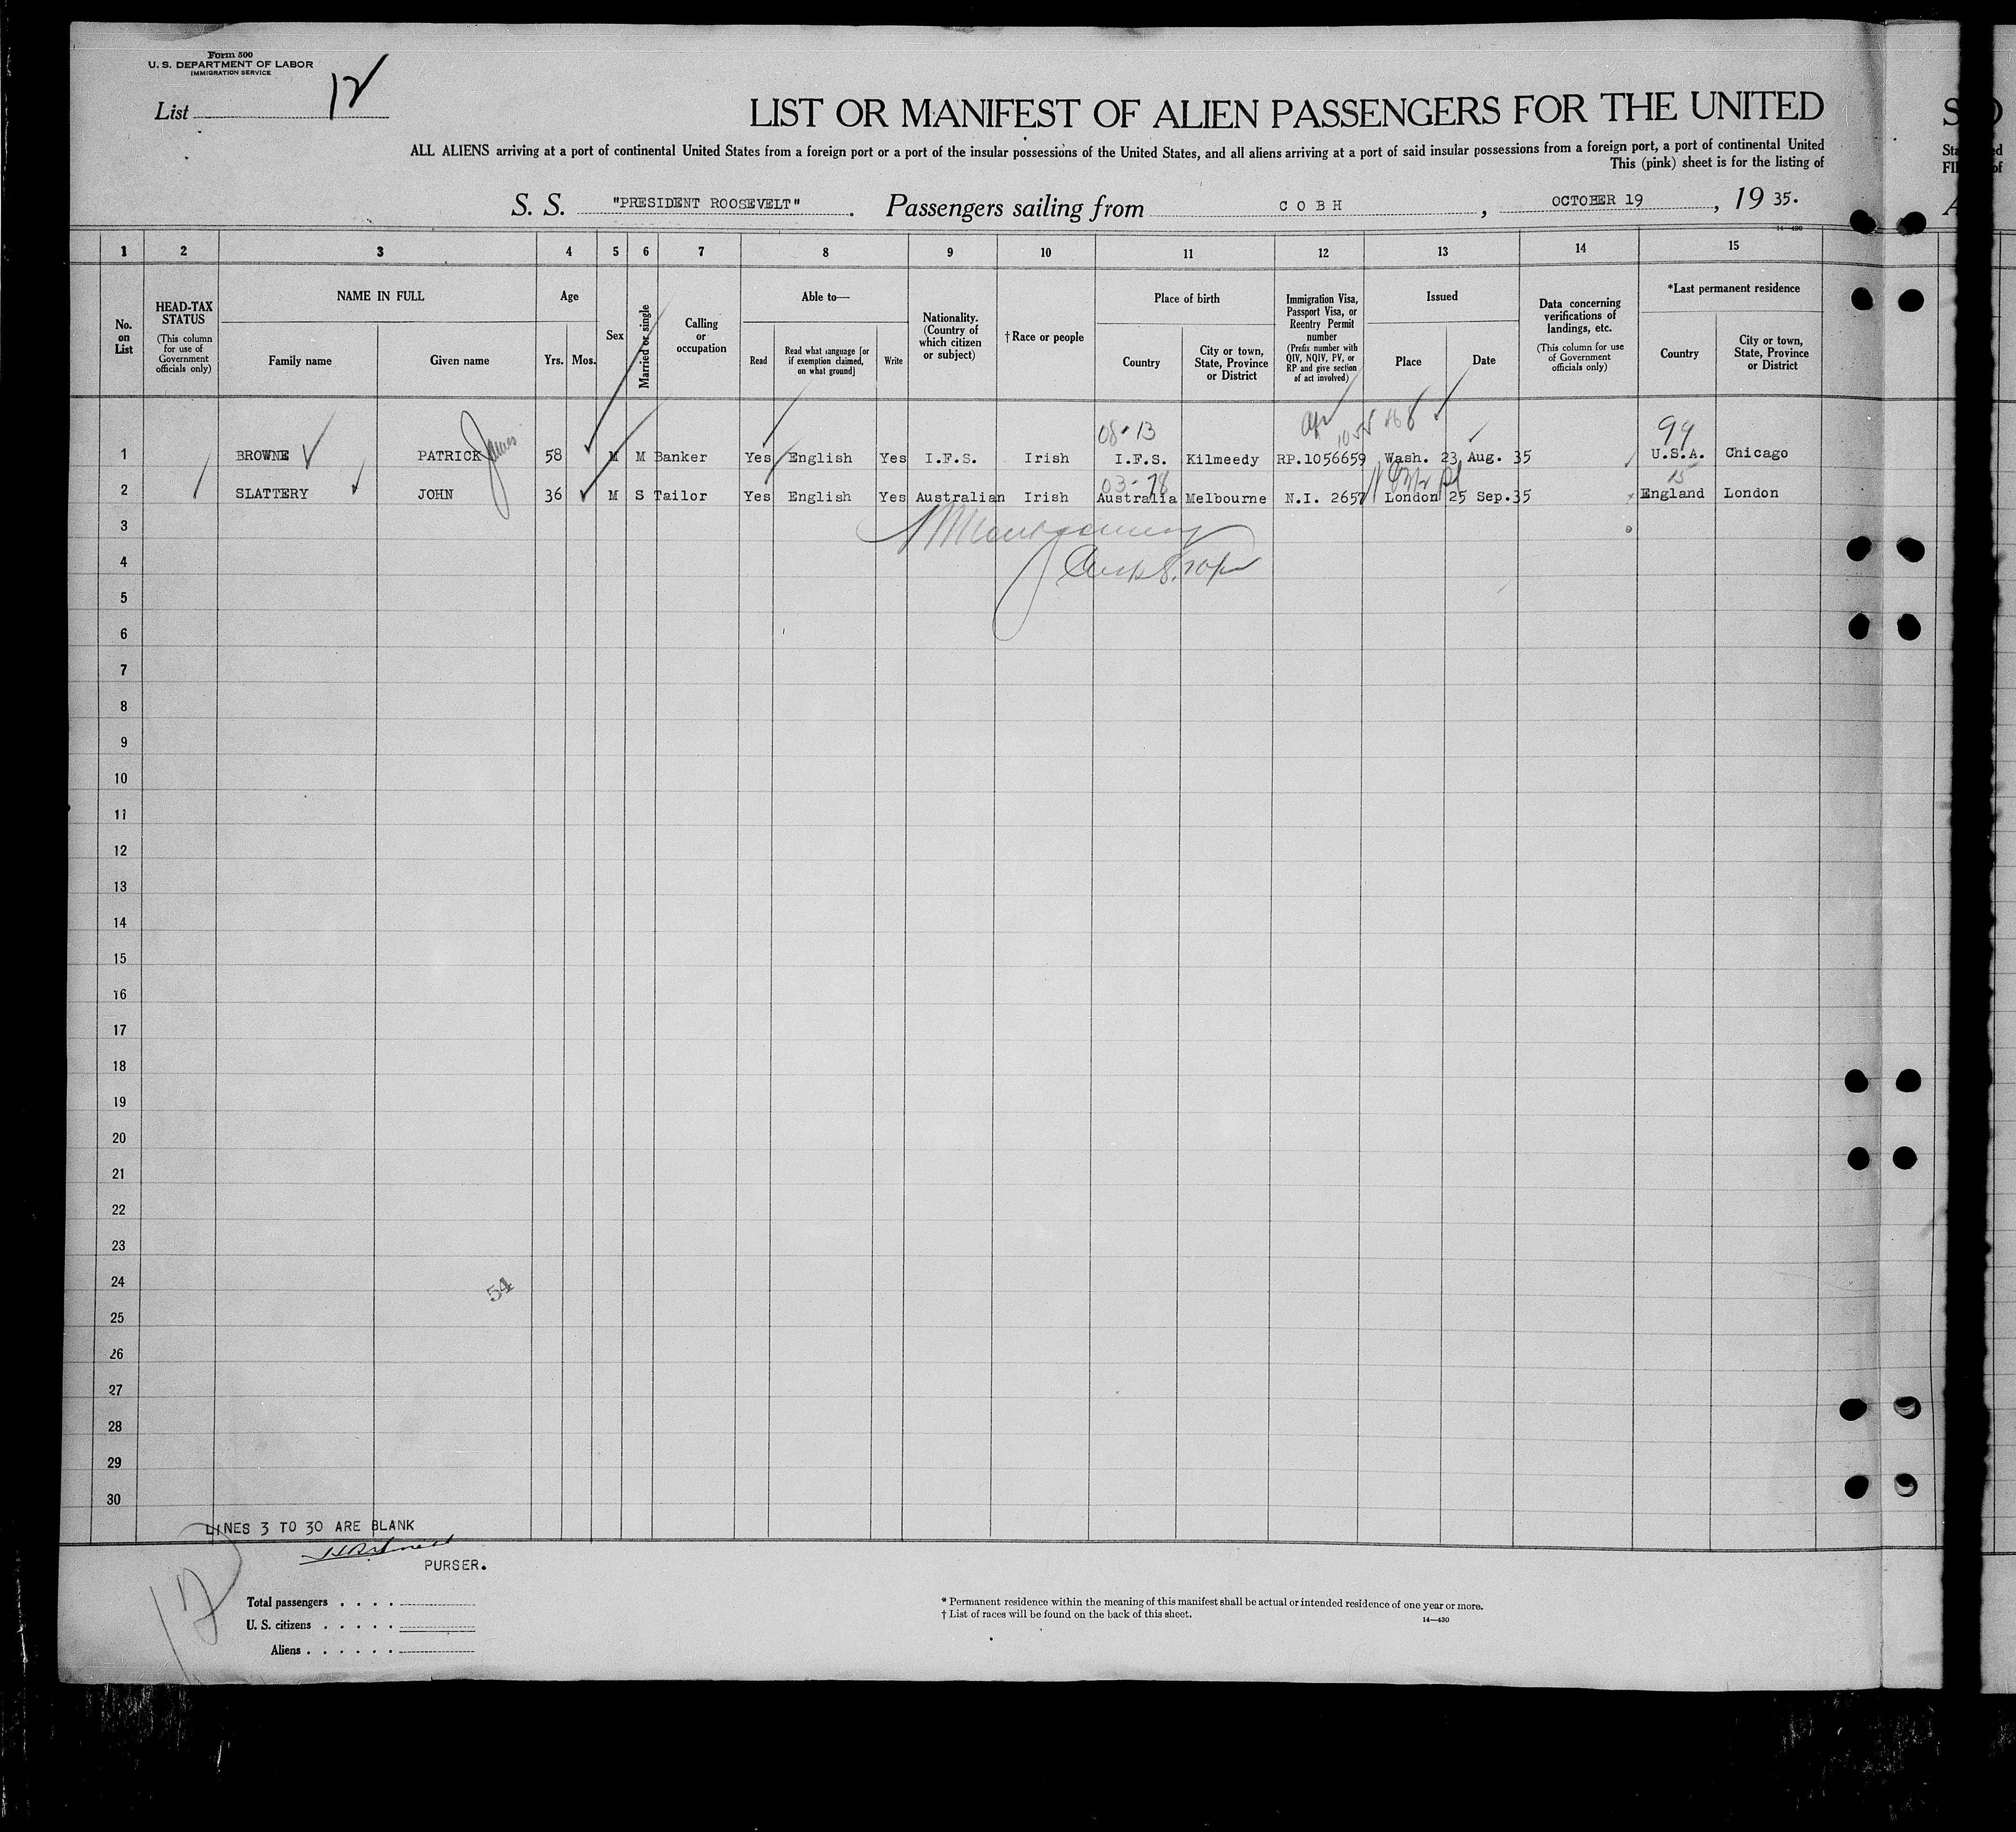 Form 500
U. S. DEPARTMENT OF LABOR
IMMIGRATION SERVICE
List 12
LIST OR MANIFEST OF ALIEN PASSENGERS FOR THE UNITED
ALL ALIENS arriving at a port of continental United States from a foreign port or a port of the insular possessions of the United States, and all aliens arriving at a port of said insular possessions from a foreign port, a port of continental United
This (pink) sheet is for the listing of
S. S. "PRESIDENT ROOSEVELT". Passengers sailing from COBH, OCTOBER 19, 19 35.
14-430
1 2 3 4 5 6 7 8 9 10 11 12 13 14 15
No. on List
HEAD-TAX STATUS
(This column for use of Government officials only)
NAME IN FULL
Family name Given name
Age
Yrs. Mos.
Sex
Married or single
Calling or occupation
Able to—
Read
Read what language [or if exemption claimed, on what ground]
Write
Nationality. (Country of which citizen or subject)
† Race or people
Place of birth
Country
City or town, State, Province or District
Immigration Visa, Passport Visa, or Reentry Permit number
(Prefix number with QIV, NQIV, PV, or RP and give section of act involved)
Issued
Place Date
Data concerning verifications of landings, etc.
(This column for use of Government officials only)
*Last permanent residence
Country
City or town, State, Province or District
08-13 99
1 BROWNE PATRICK James 58 M M Banker Yes English Yes I.F.S. Irish I.F.S. Kilmeedy RP.1056659 Wash. 23 Aug. 35 U.S.A. Chicago
03-78 15
2 SLATTERY JOHN 36 M S Tailor Yes English Yes Australian Irish Australia Melbourne N.I. 2657 London 25 Sep.35 England London
3
Montgomery
4
5
6
7
8
9
10
11
12
13
14
15
16
17
18
19
20
21
22
23
24
54
25
26
27
28
29
30
LINES 3 TO 30 ARE BLANK
PURSER.
12
Total passengers
U. S. citizens
Aliens
* Permanent residence within the meaning of this manifest shall be actual or intended residence of one year or more.
† List of races will be found on the back of this sheet.
14—430